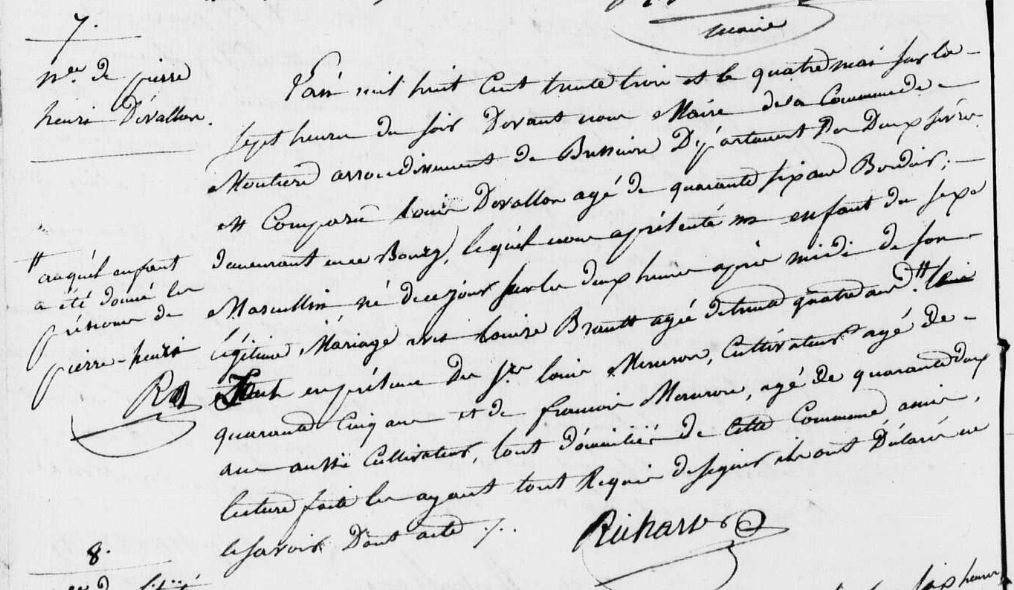 maire
7.
née de pierre
henri Dévallon.
L'an mil huit Cent trente trois et le quatre mai sur les
sept heures du soir Devant nous Maire de la Commune de
Moutiers arrondissement de Bressuire Département Des Deux sèvres
est Comparu Louis Devallon agé de quarante six ans Bordier,
demeurant en ce Bourg, lequel nous a présenté un enfant du sexe
Masculin né de ce jour sur les deux heures après midi de son
légitime Mariage avec Louise agée de trente quatre ans #
# auquel enfant
a été donné les
prénoms de
pierre-henri
en présence des Srs louis cultivateur agé de
quarante Cinq ans et de francois agé de quarante deux
ans aussi Cultivateur, tout domiciliés de Cette Commune
lecture faite les ayant tout Requis de signer ils ont Déclaré ne
le savoir Dont acte 7.
Richard
8.